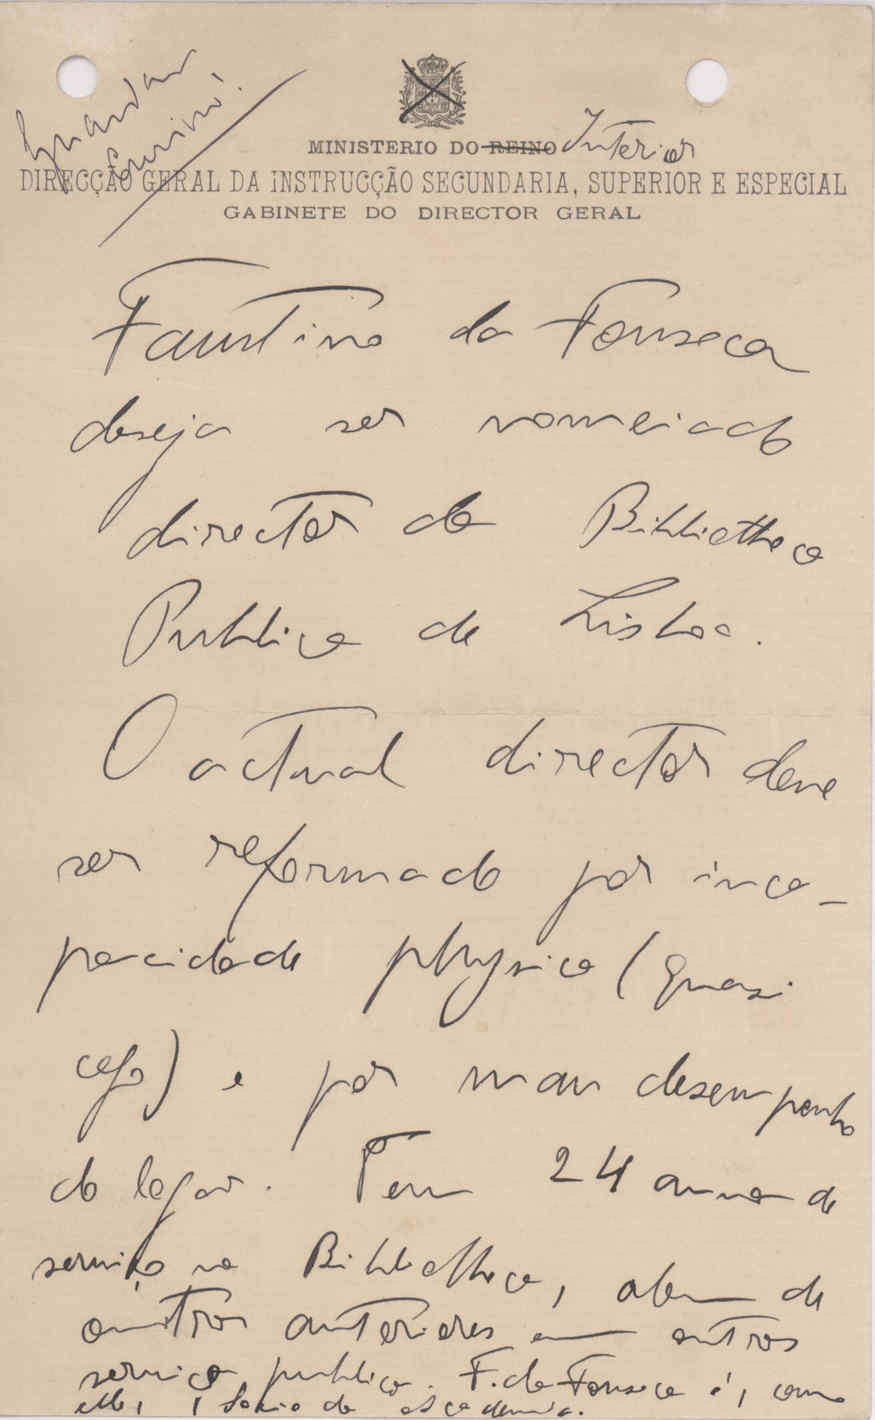 Guardar
MINISTERIO DO REINO Interior
DIRECÇÃO GERAL DA INSTRUCÇÃO SECUNDARIA, SUPERIOR E ESPECIAL
GABINETE DO DIRECTOR GERAL
Faustino da Fonseca
deseja ser nomeiado
director da Bibliotheca
Publica de Lisboa.
O actual director deve
ser reformado por inca-
pacidade physica (quasi
cego) e por mau desempenho
do logar. Tem 24 annos de
serviço na Bibliotheca, alem de
outros anteriores em outros
serviço publico. F. da Fonseca é, como
elle, socio da Academia.